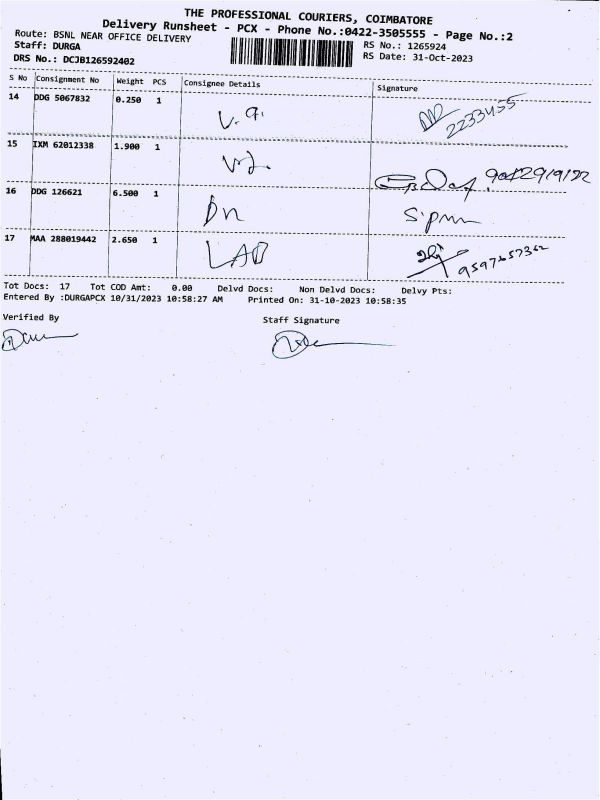 THE PROFESSIONAL COURIERS, COIMBATORE
Delivery Runsheet - PCX - Phone No.:0422-3505555 - Page No.:2
Route: BSNL NEAR OFFICE DELIVERY
RS No.: 1265924
Staff: DURGA
RS Date: 31-Oct-2023
DRS No.: DCJB126592402
S No Consignment No Weight PCS Consignee Details Signature
14 DDG 5067832 0.250 1
2233455
15 IXM 62012338 1.900 1
16 DDG 126621 6.500 1 Dn
17 MAA 288019442 2.650 1
Tot Docs: 17 Tot COD Amt: 0.00 Delvd Docs: Non Delvd Docs: Delvy Pts:
Entered By :DURGAPCX 10/31/2023 10:58:27 AM Printed On: 31-10-2023 10:58:35
Verified By Staff Signature